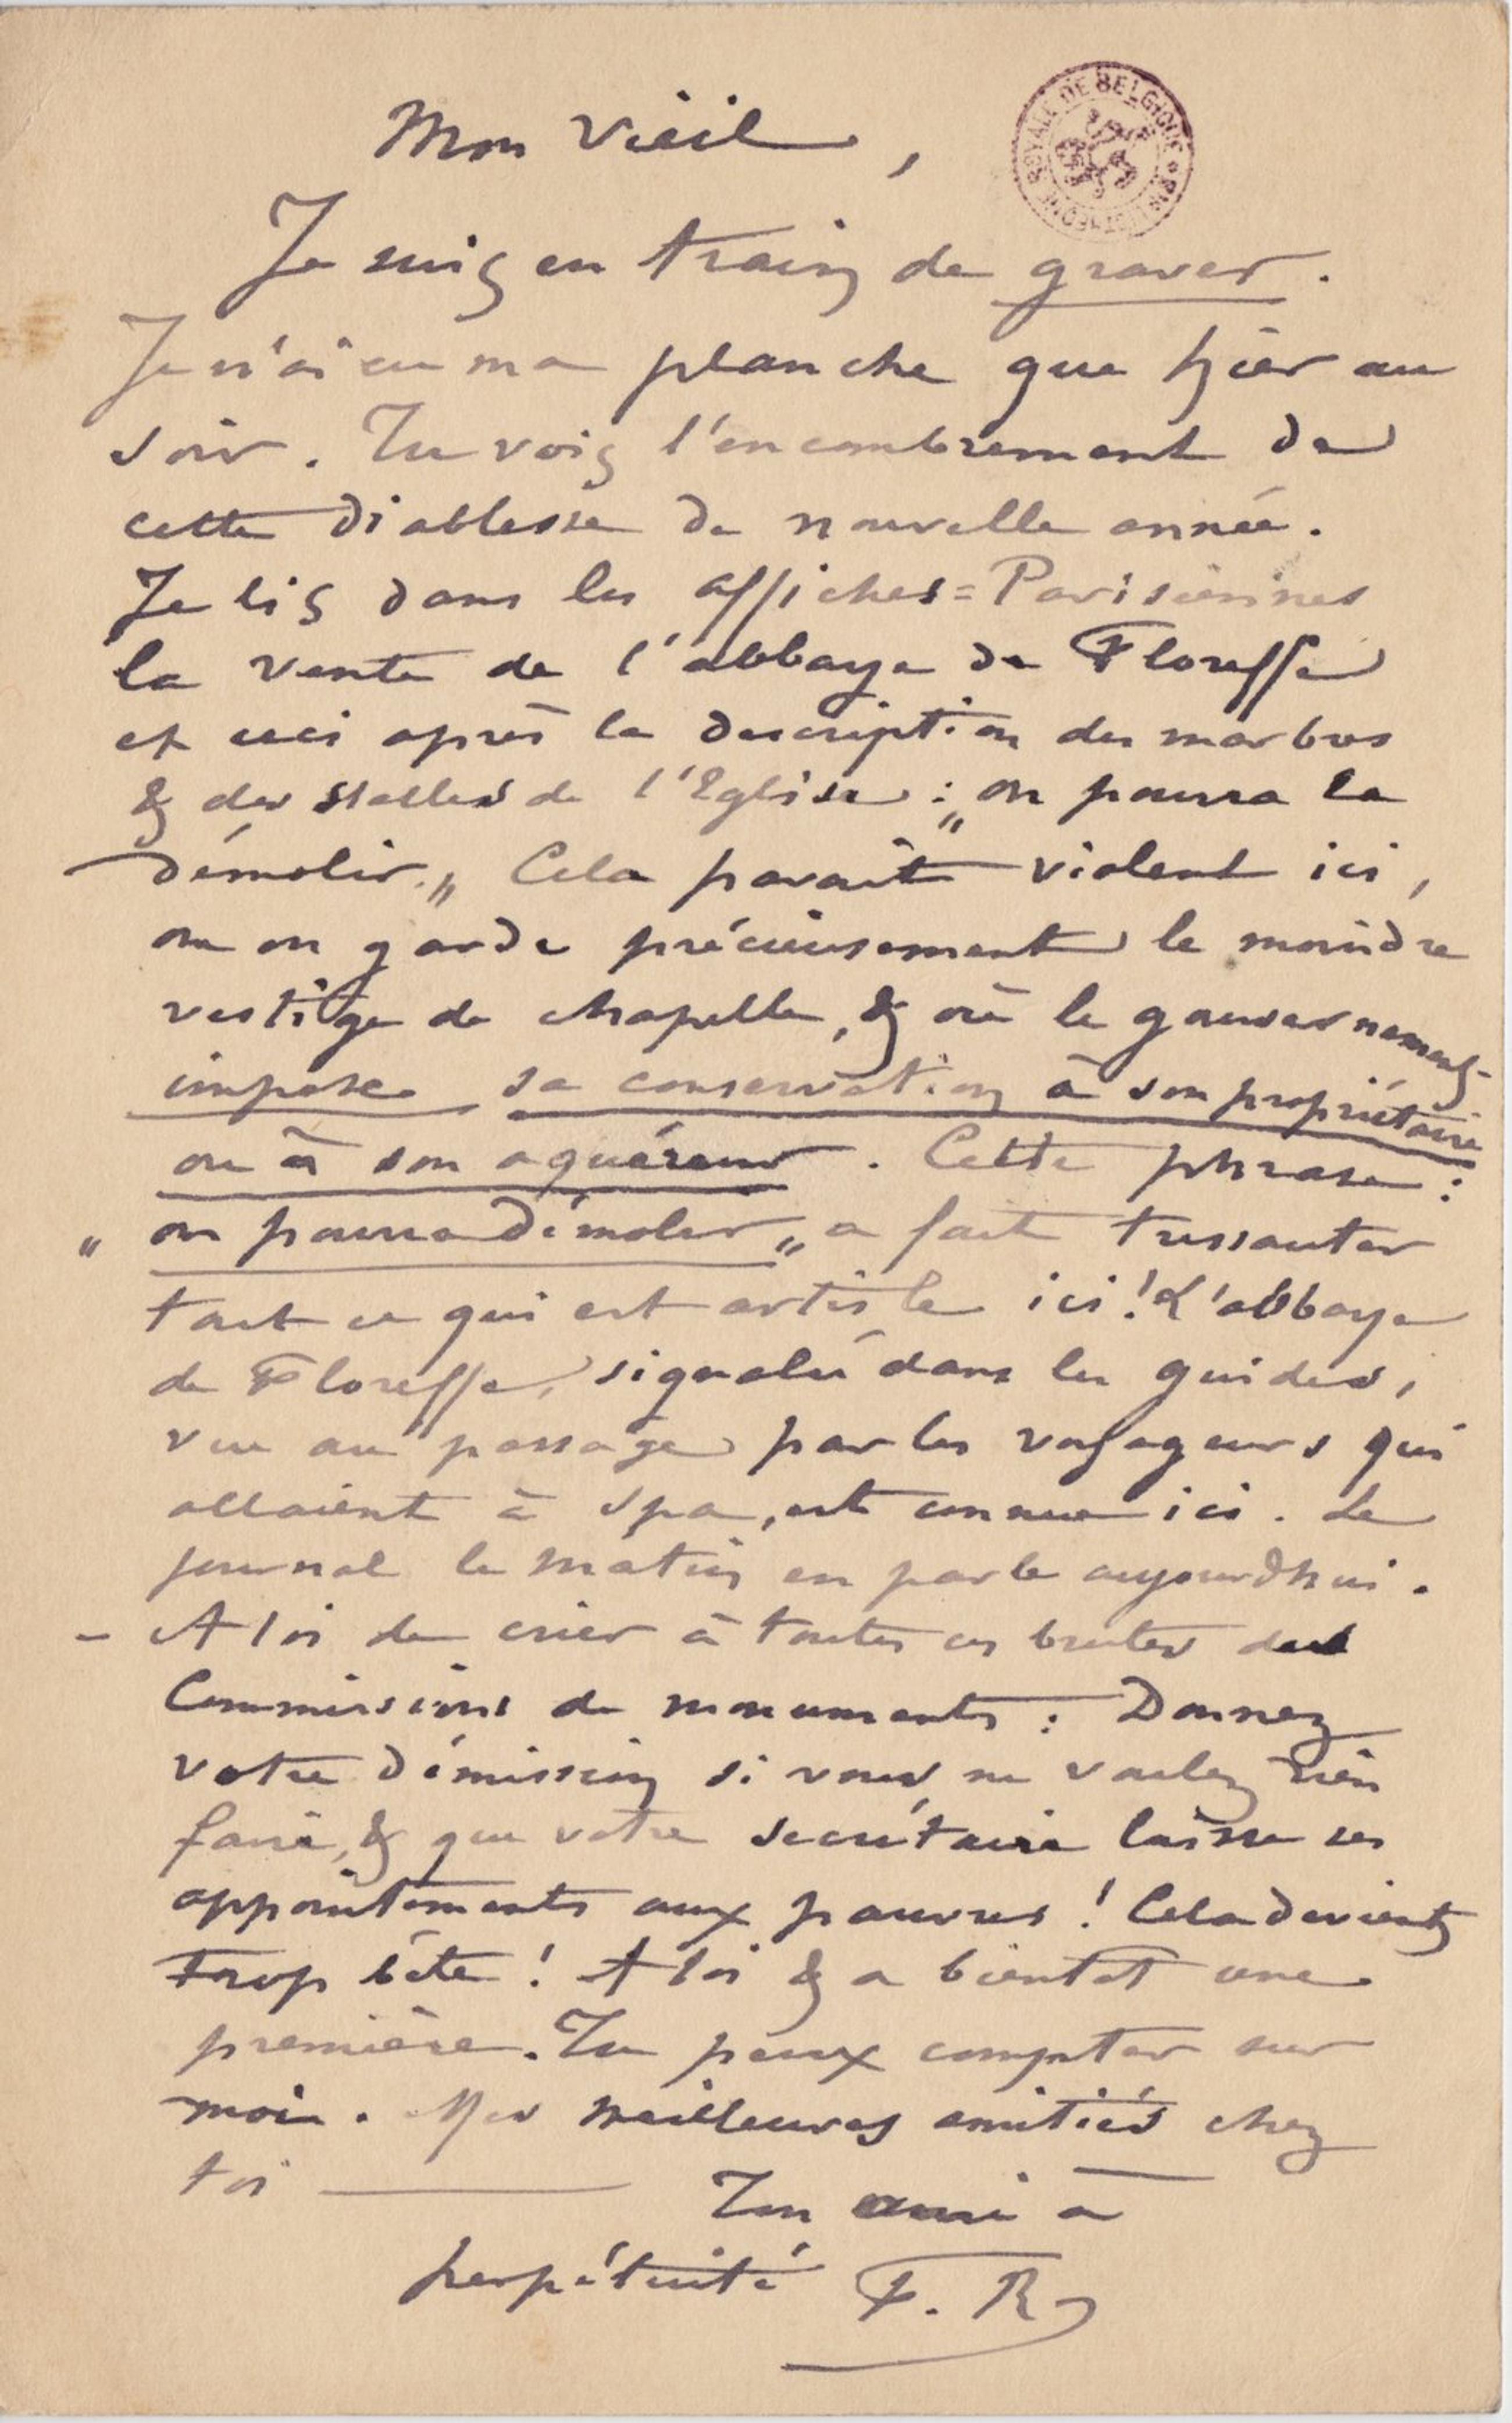 Mon Vieil,
BIBLIOTHEQUE ROYALE DE BELGIQUE
Je suis en train de graver.
Je n'ai eu ma planche que hier au
soir. Tu vois l'encombrement de
cette diablesse de nouvelle année.
Je lis dans les affiches=Parisiennes
la vente de l'abbaye de Floreffe
et ceci après la description des marbres
& des stalles de l'Eglise : „on pourra la
démolir.„ Cela parait violent ici,
ou on garde précieusement le moindre
vestige de chapelle, & où le gouvernement
impose sa conservation à son propriétaire
ou à son aquéreur. Cette phrase :
„ on pourra démolir„ a fait tressauter
tout ce qui est artiste ici! L'abbaye
de Floreffe, signalée dans les guides,
vue au passage par les voyageurs qui
allaient à Spa, est connue ici. Le
journal le Matin en parle aujourdhui.
– A toi de crier à toutes ces brutes des
Commissions de monuments : Donnez
votre démission si vous ne voulez rien
faire, & que votre secrétaire laisse ses
appointements aux pauvres ! Cela devient
trop bête ! A toi & a bientot une
première. Tu peux compter sur
moi. Mes meilleures amitiés chez
toi — Ton ami à
perpétuité F. R